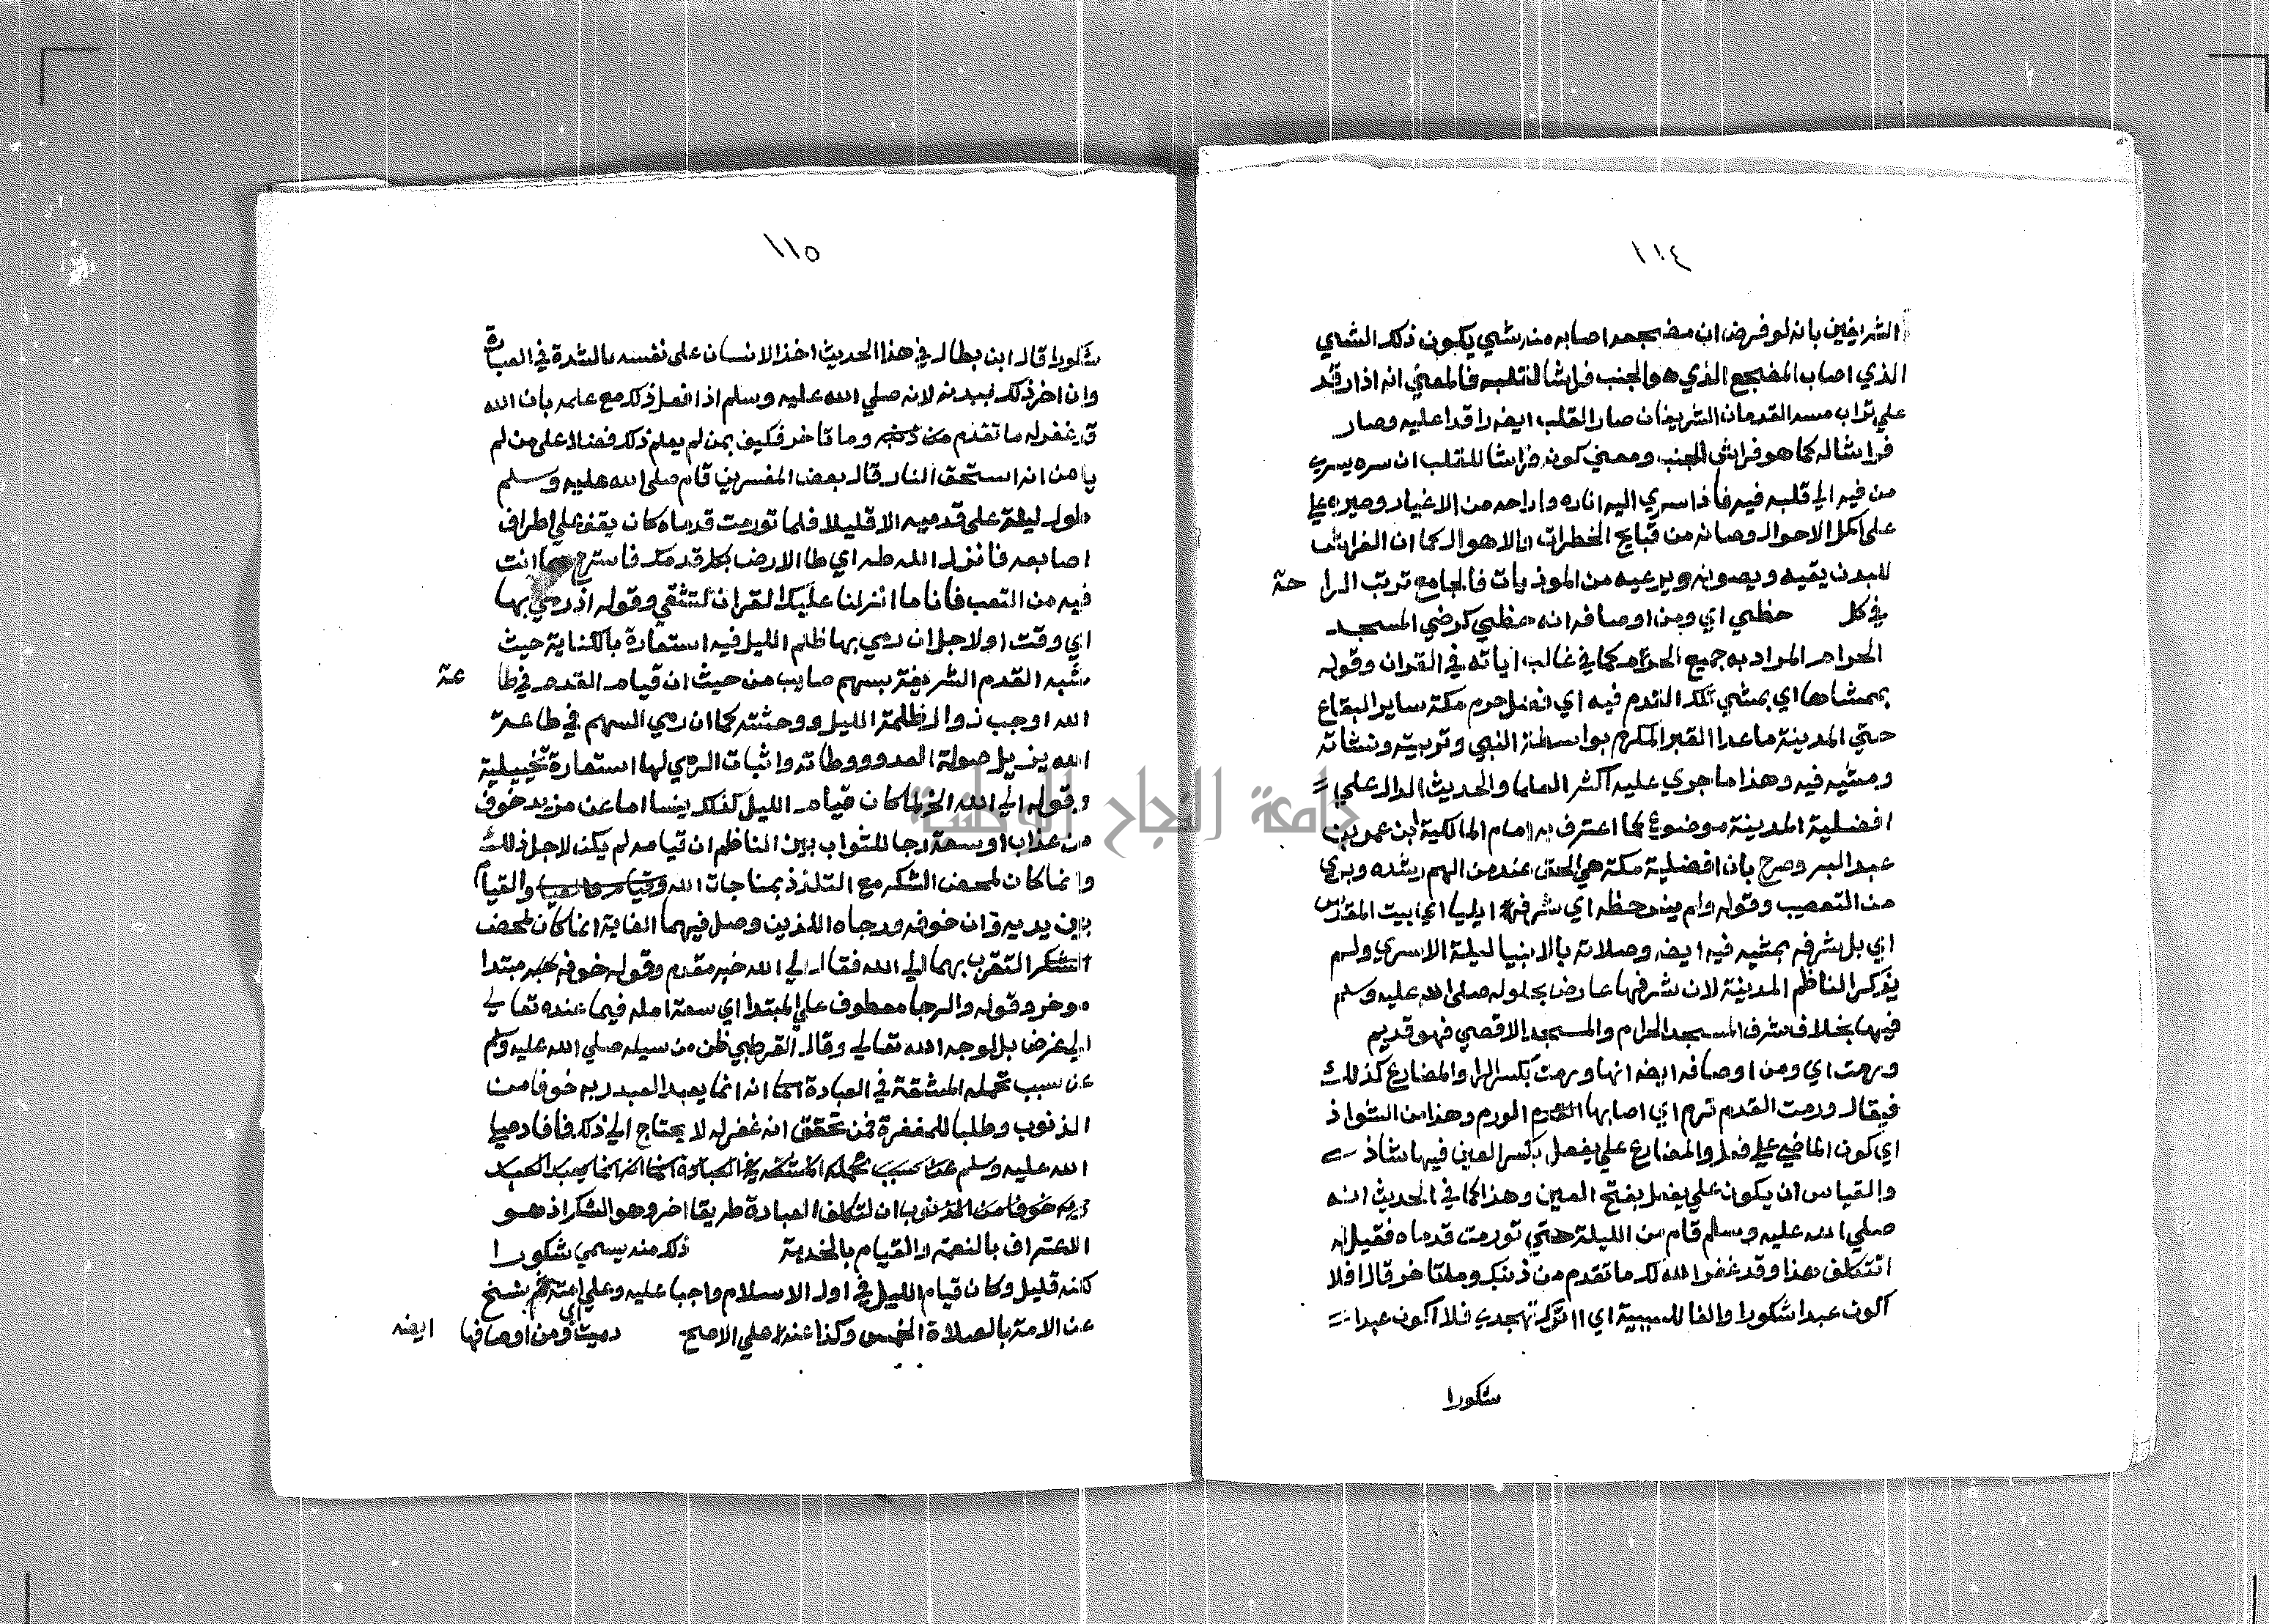 ١١٤
الشريفين بانه لو فرض ان مضجعه اصابه منه شي يكون ذلك الشي
الذي اصاب المضجع الذي هو الجنب فراشا لقلبه فالمعني انه اذا رقد
علي تراب مسه القدمان الشريفان صار القلب ايضه راقدا عليه وصار
فراشا له كما هو فراش الجنب ومعني كونه فراشا للقلب ان سره يسري
من فيه الي قلبه فيه فاذا سري اليه اناره واراحه من الاغيار وصيره علي
علي اكمل الاحوال وصانه من قبايح الخطرات والاهوال كما ان الفراش
للبدن يقيه ويصونه ويرعيه من الموذيات فالجامع ترتب الراحة
في كل حظي اي ومن اوصافه انه حظي كرضي المسجد
الحرام المراد به جميع الحرام كما في غالب اياته في القران وقوله
بممشاها اي بمشي تلك القدم فيه اي افضل حرم مكة ساير البقاع
حتي المدينة ماعدا القبر المكرم بواسطة النبي وتربيته ونشاته
ومشيه فيه وهذا ما جري عليه اكثر العلما والحديث الدال علي
افضلية المدينة موضوع كما اعترف به امام المالكية ابن عمر بن
عبد البر وصرح بان افضلية مكة هي الحق عند من الهم رشده وبري
من التعصب وقوله ولم ينس حظه اي شرفه ايليا اي بيت المقدس
اي بل شرفه بمشيه فيه ايضه وصلاته بالانبيا ليلة الاسري ولم
يذكر الناظم المدينة لان شرفها عارض بحلوله صلي الله عليه وسلم
فيها بخلاف شرف المسجد الحرام والمسجد الاقصي فهو قديم
ورمت اي ومن اوصافه ايضه انها ورمت بكسر الرا والمضارع كذلك
فيقال ورمت القدم ترم اي اصابها الورم وهذا من الشواذ
اي كون الماضي علي فعل والمضارع علي يفعل بكسر العين فيها شاذ
والقياس ان يكون علي يفعل بفتح العين وهذا كما في الحديث انه
صلي الله عليه وسلم قام من الليلة حتي تورمت قدماه فقيل له
اتتكلف هذا وقد غفر الله لك ما تقدم من ذنبك وما تاخر قال افلا
اكون عبدا شكورا والفا للسببية اي ااترك تهجدي فلا اكون عبدا
شكورا
١١٥
شكورا قال ابن بطال في هذا الحديث اخذ الانسان علي نفسه بالشدة في العبادة
وان اضر ذلك ببدنه لانه صلي الله عليه وسلم اذا فعل ذلك مع علمه بان الله
قد غفر له ما تقدم من ذنبه وما تاخر فكيف بمن لم يعلم ذلك فضلا علي من لم
يامن انه استحق النار قال بعض المفسرين قام صلي الله عليه وسلم
طول ليلة علي قدميه الا قليلا فلما تورمت قدماه كان يقف علي اطراف
اصابعه فانزل الله طه اي طا الارض بكل قدمك فاسترح مما انت
فيه من التعب فانا ما انزلنا عليك القران لتشقي وقوله اذ رمي بها
اي وقت او لاجل ان رمي بها ظلم الليل فيه استعارة بالكناية حيث
شبه القدم الشريفة بسهم صايب من حيث ان قيام القدم في طاعة
الله اوجب زوال ظلمة الليل ووحشته كما ان رمي السهم في طاعة
الله يزيل صولة العدو ووطاته واثبات الرمي لها استعارة تخييلية
وقوله الي الله الخ لما كان قيام الليل كذلك ينسا اما عن مزيد خوف
من عذاب او سعة رجا للثواب بين الناظم ان قيامه لم يكن لاجل ذلك
وانما كان لمحض الشكر مع التلذذ بمناجات الله والقيام
بين يديه وان خوفه ورجاه اللذين وصل فيهما الغاية انما كان لمحض
التقرب بهما الي الله فقال الي الله خبر مقدم وقوله خوفه مبتدا
موخر وقوله والرجا معطوف علي المبتدا اي سعة امله فيما عنده تعالي
لا لغرض بل لوجه الله تعالي وقال القرطبي ظن من سيله صلي الله عليه وسلم
عن سبب تحمله المشقة في العبادة انه انما يعبد العبد ربه خوفا من
الذنوب وطلبا للمغفرة فمن تحقق انه غفر له لا يحتاج الي ذلك فافادهم صلي
الله عليه وسلم عن سبب تحمله المشقة في العبادة انما انه انما يعبد العبد
ربه خوفا من الذنوب ان لتكلف العبادة طريقا اخر وهو الشكر اذ هو
الاعتراف بالنعمة والقيام بالخدمة ذلك منه يسمي شكورا
كانه قليل وكان قيام الليل في اول الاسلام واجبا عليه وعلي امته ثم نسخ
عن الامة بالصلاة الخمس وكذا عنه علي الاصح دميت اي ومن اوصافها ايضه